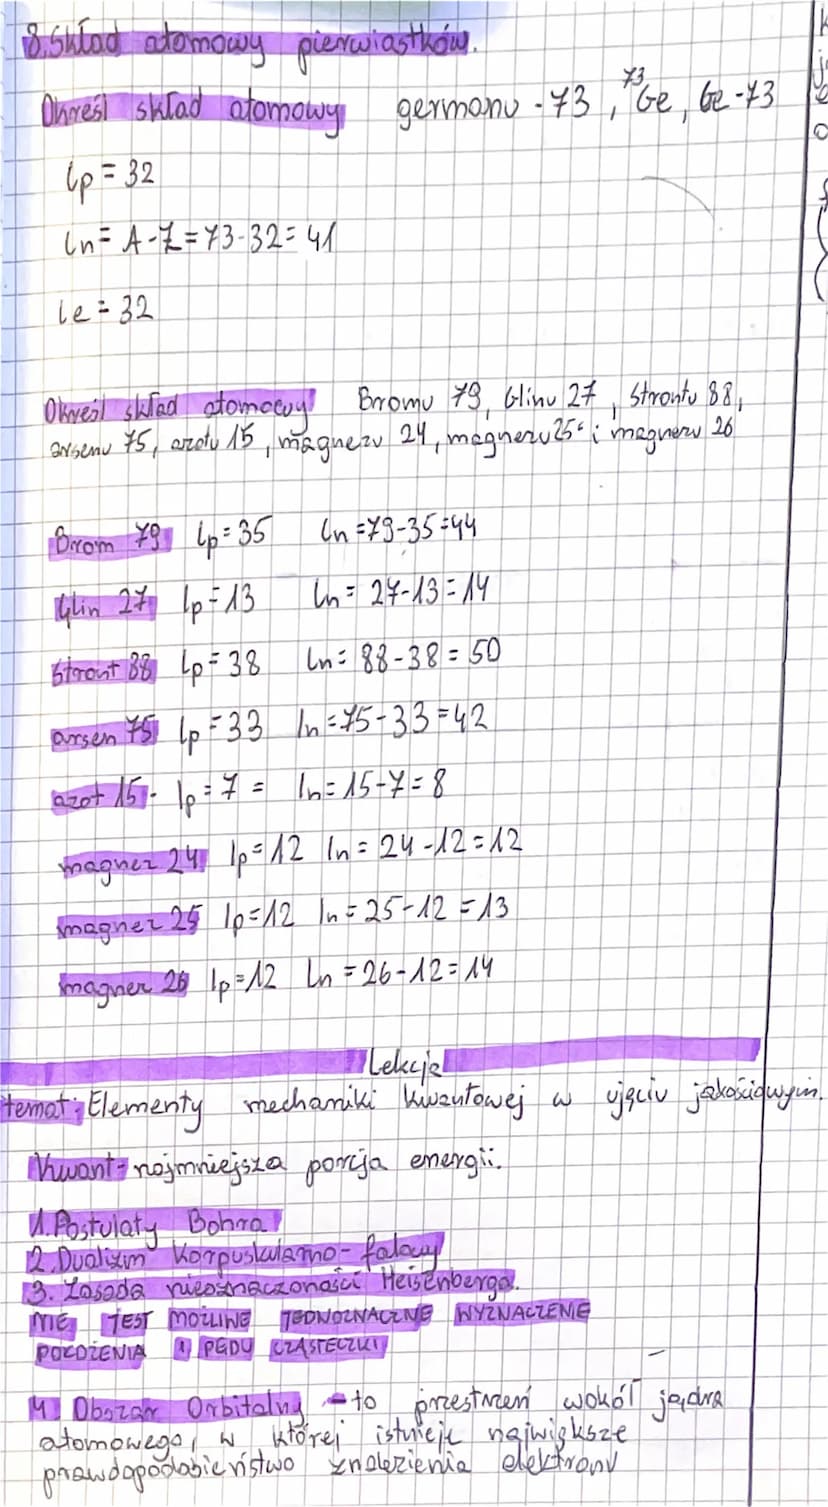 8. Skład atomowy pierwiastków.
Określ skład atomowy germanu - 73, ⁷³Ge, Ge-73
lp = 32
ln = A-Z = 73-32 = 41
le = 32
Określ skład atomowy Bromu 79, Glinu 27, Strontu 88,
arsenu 75, azotu 15, magnezu 24, magnezu 25 i magnezu 26
Brom 79 lp = 35 ln = 79-35 = 44
Glin 27 lp = 13 ln = 27-13 = 14
Stront 88 lp = 38 ln = 88-38 = 50
arsen 75 lp = 33 ln = 75-33 = 42
azot 15 - lp = 7 = ln = 15-7 = 8
magnez 24 lp = 12 ln = 24-12 = 12
magnez 25 lp = 12 ln = 25-12 = 13
magnez 26 lp = 12 ln = 26-12 = 14
Lekcja
temat: Elementy mechaniki kwantowej w ujęciu jakościowym.
Kwant - najmniejsza porcja energii.
1. Postulaty Bohra
2. Dualizm Korpuskularno - falowy
3. Zasada nieoznaczoności Heisenberga.
NIE JEST MOŻLIWE JEDNOZNACZNE WYZNACZENIE
POŁOŻENIA I PĘDU CZĄSTECZKI
4. Obszar Orbitalny - to przestrzeń wokół jądra
atomowego, w której istnieje największe
prawdopodobieństwo znalezienia elektronu